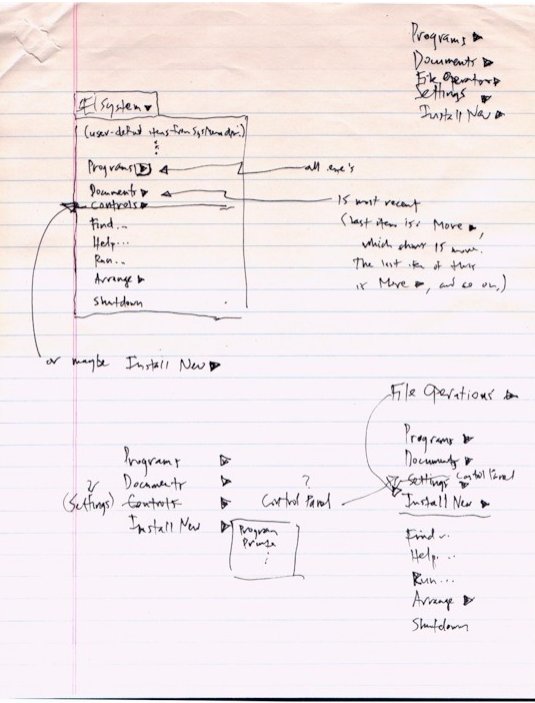 Programs ▶
Documents ▶
File Operators ▶
Settings ▶
Install New ▶
System ▼
(user-defined items from System dir.)
Programs ▶
all .exe's
Documents ▶
15 most recent
Controls ▶
(last item is: More ▶,
Find...
which shows 15 more.
Help...
The last item of this
Run...
is More ▶, and so on.)
Arrange ▶
Shutdown
or maybe Install New ▶
File Operations ▶
Programs ▶
Documents ▶
Settings ▶ Control Panel
Install New ▶
Find...
Help...
Run...
Arrange ▶
Shutdown
Programs ▶
Documents ▶
?
(Settings) Controls ▶
?
Control Panel
Install New ▶
Program
Printer